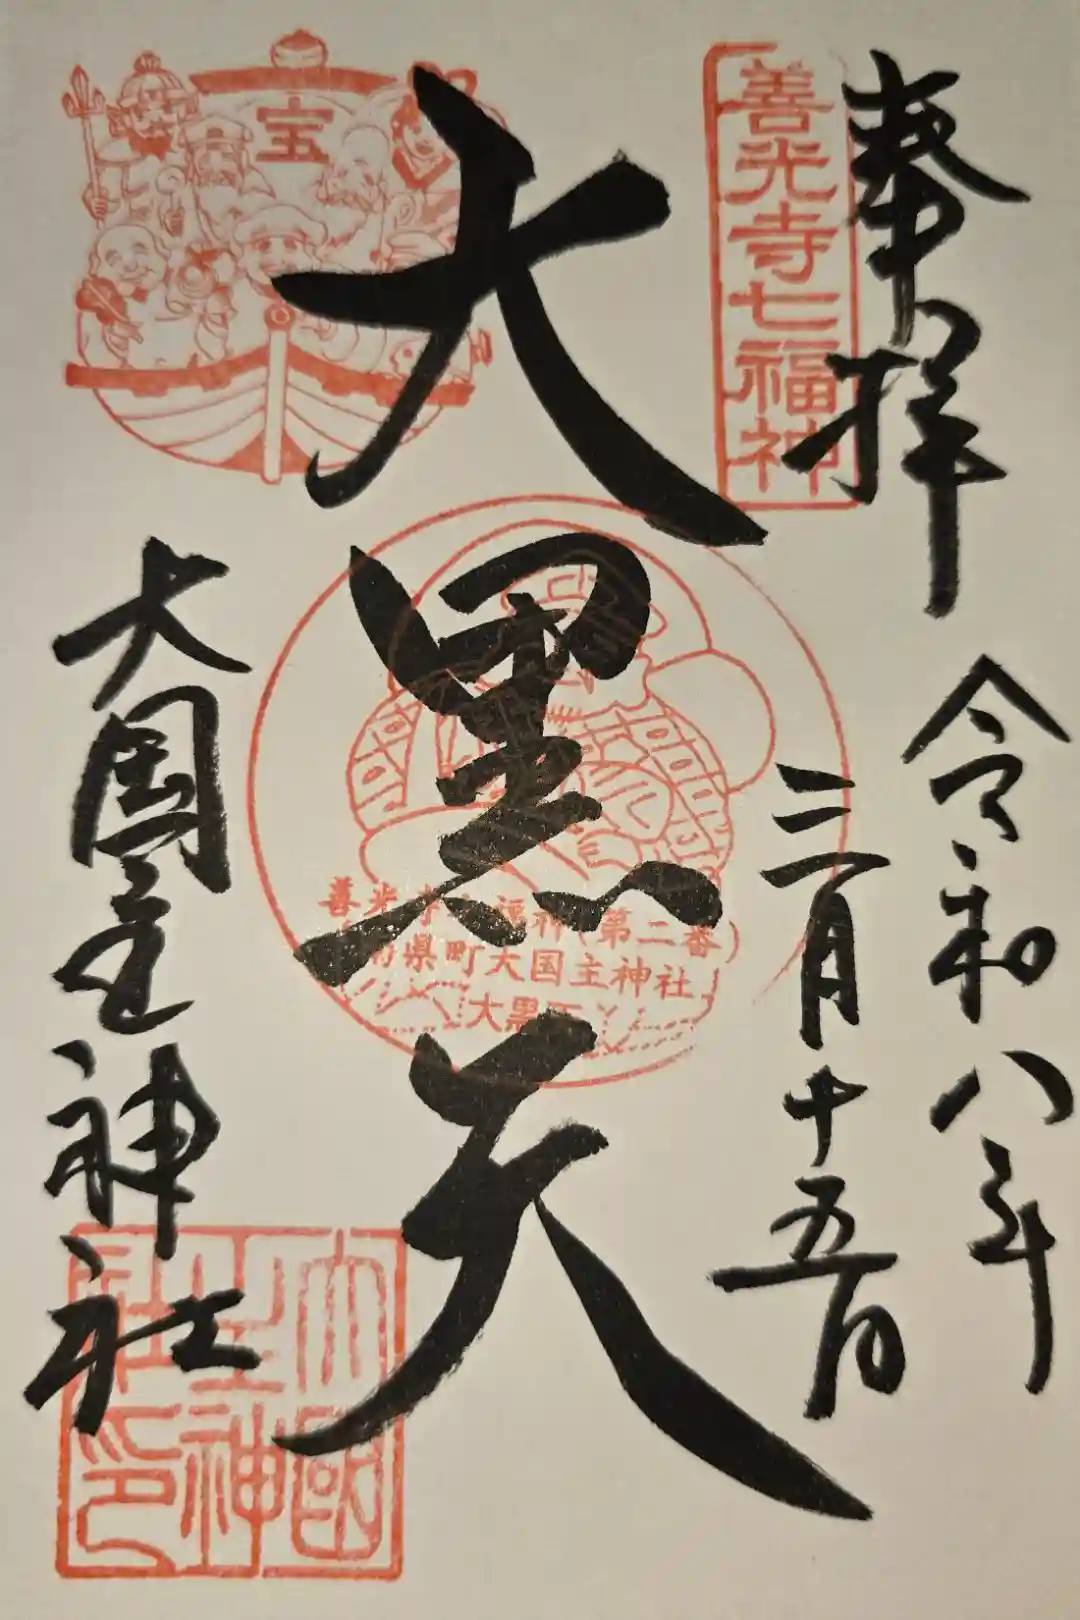 奉拝
令和八年
三月十五日
善光寺七福神
大黒天
宝
善光寺七福神(第二番)
南県町大国主神社
大黒天
大国主神社
大國
主神
社印